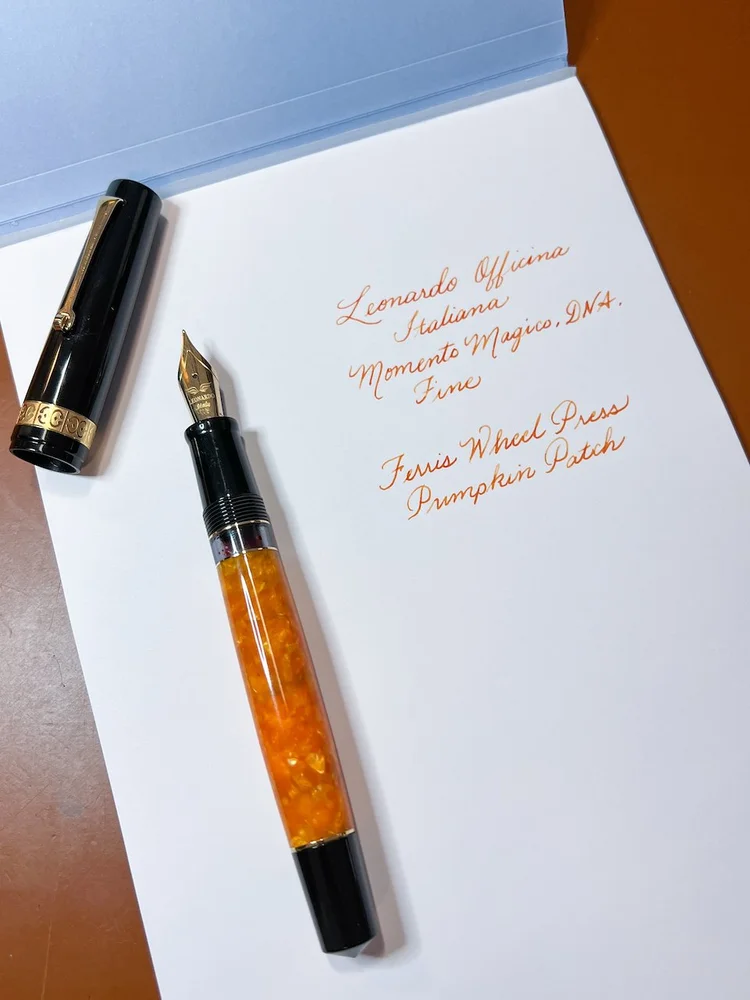 Leonardo Officina
Italiana
Momento Magico, DNA.
Fine
Ferris Wheel Press
Pumpkin Patch
LEONARDO